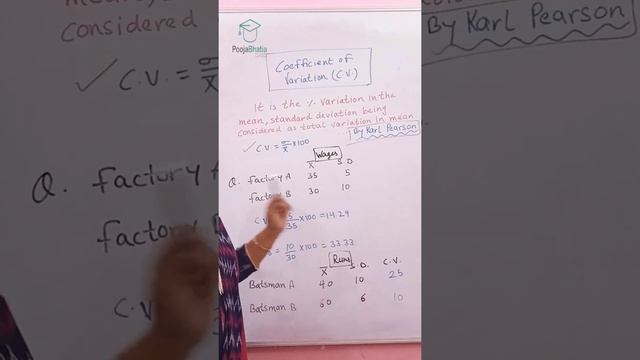 PoojaBhatia
Coefficient of
Variation (C.V.)
It is the % Variation in the
mean, standard deviation being
considered as total variation in mean
... By Karl Pearson
✓ C.V. = σ/x̄ × 100
Wages
X̄ S.D.
Q. Factory A 35 5
Factory B 30 10
C.V. 5/35 × 100 = 14.29
= 10/30 × 100 = 33.33
Runs
X̄ S.D. C.V.
Batsman A 40 10 25
Batsman B 60 6 10